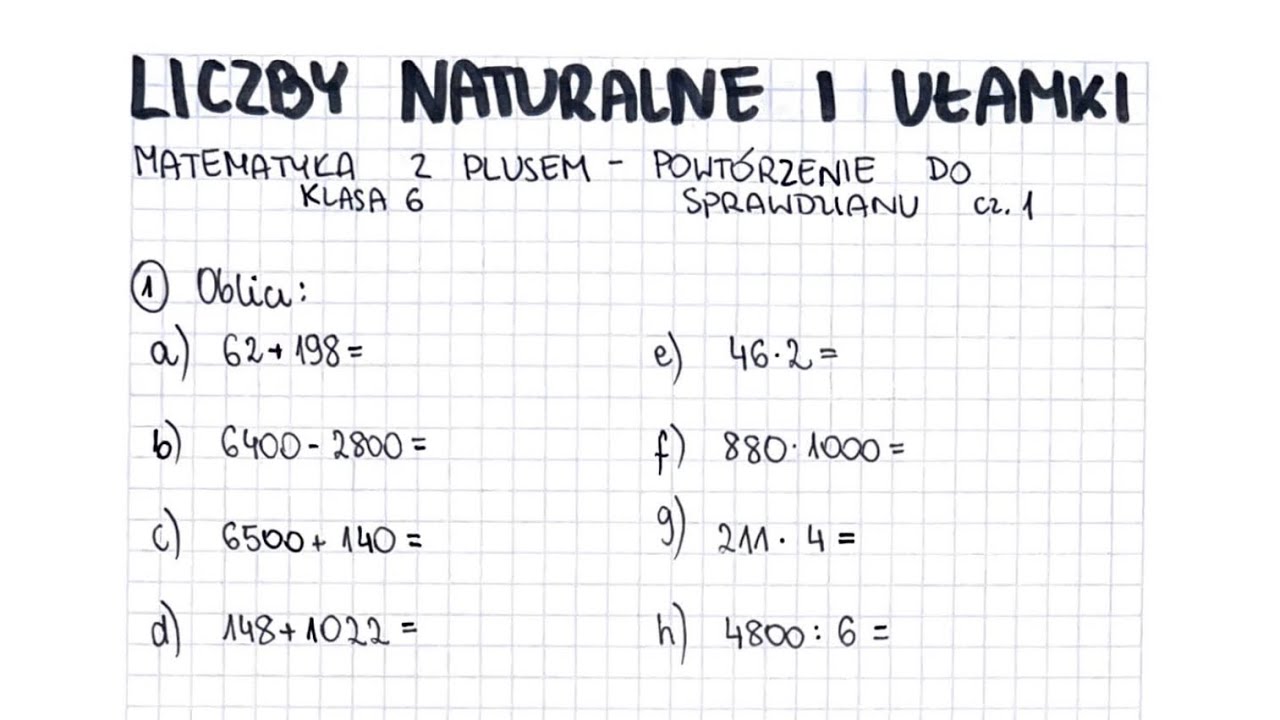 LICZBY NATURALNE I UŁAMKI
MATEMATYKA Z PLUSEM - POWTÓRZENIE DO
KLASA 6 SPRAWDZIANU cz. 1
1 Oblicz:
a) 62 + 198 =
e) 46 · 2 =
b) 6400 - 2800 =
f) 880 · 1000 =
c) 6500 + 140 =
g) 211 · 4 =
d) 148 + 1022 =
h) 4800 : 6 =